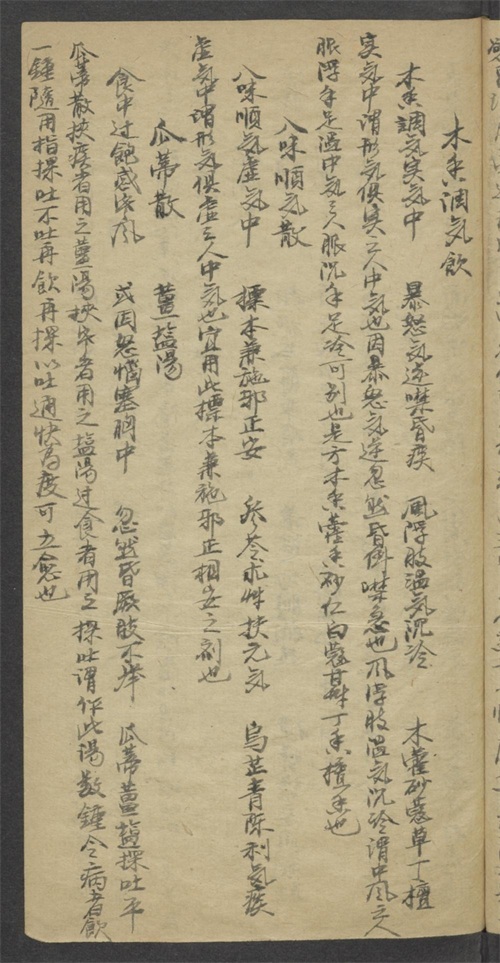 木香調氣飲
木香調氣实氣中　暴怒氣逆噤昏痰　風浮肢温氣沉冷　木藿砂蔻草丁檀
实氣中謂形氣俱实之人中氣也因暴怒氣逆忽然昏倒噤急也風浮肢温氣沉冷謂中風之人
脈浮手足温中氣之人脈沉手足冷可别也是方木香藿香砂仁白蔻甘草丁香檀香也
八味順氣散
八味順氣虚氣中　標本兼施邪正安　參苓朮草扶元氣　烏芷青陳利氣痰
虚氣中謂形氣俱虚之人中氣也宜用此標本兼施邪正相安之剂也
瓜蒂散　薑塩湯
食中过飽感寒風　或因怒惱塞胸中　忽然昏厥肢不举　瓜蒂薑塩探吐平
瓜蒂散挾痰者用之薑湯挾寒者用之塩湯过食者用之探吐謂作此湯数鍾令病者飲
一鍾隨用指探吐不吐再飲再探以吐通快為度可立愈也